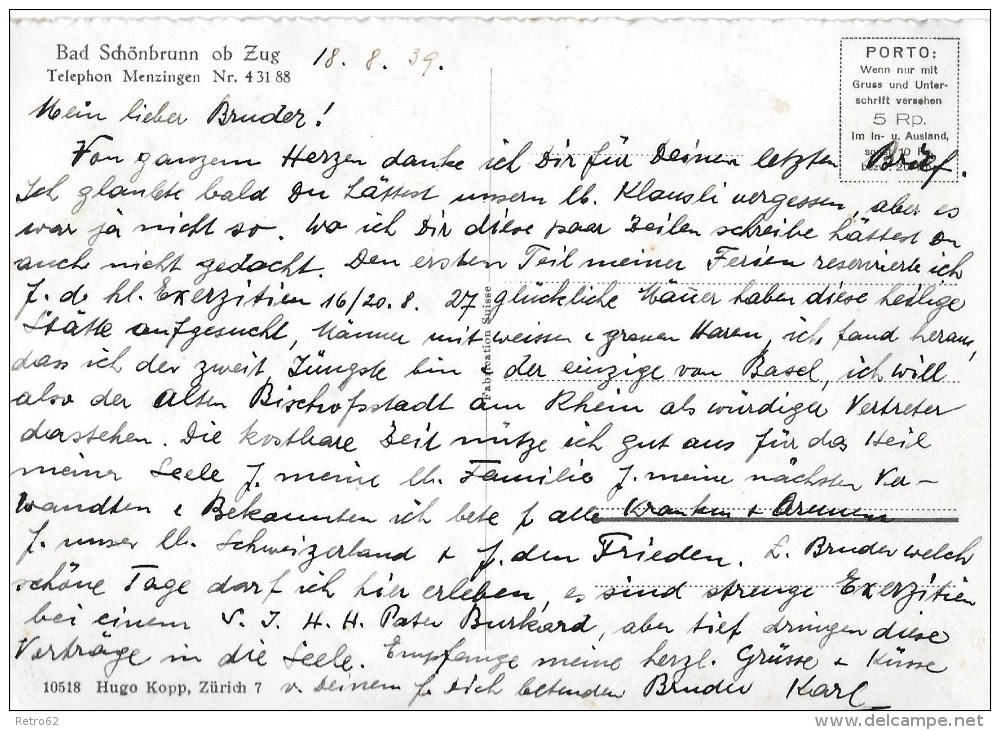 Bad Schönbrunn ob Zug
Telephon Menzingen Nr. 4 31 88
18. 8. 39.
PORTO:
Wenn nur mit
Gruss und Unter-
schrift versehen
5 Rp.
Im In- u. Ausland,
Mein lieber Bruder!
Von ganzem Herzen danke ich Dir für Deinen letzten Brief.
Ich glaubte bald Du hättest unsern lb. Klausli vergessen, aber es
war ja nicht so. Wo ich Dir diese paar Zeilen schreibe hättest Du
auch nicht gedacht. Den ersten Teil meiner Ferien reservierte ich
f. d. hl. Exerzitien 16/20. 8. 27 glückliche Mäner haben diese heilige
Stätte aufgesucht, Männer mit weissen & grauen Haren, ich fand heraus,
dass ich der zweit Jüngste bin & der einzige von Basel, ich will
also der alten Bischofsstadt am Rhein als würdiger Vertreter
dastehen. Die kostbare Zeit nütze ich gut aus für das Heil
meiner Seele f. meine lb. Familie f. meine nächsten Ver-
wandten & Bekannten ich bete f alle Kranken & Armen
f. unser lb. Schweizerland & f. den Frieden. L. Bruder welch
schöne Tage darf ich hier erleben, es sind strenge Exerzitien
bei einem S. J. H. H. Pater Burkard, aber tief dringen diese
Vorträge in die Seele. Empfange meine herzl. Grüsse & Küsse
v. Deinem f. Dich betenden Bruder Karl
Fabrication Suisse
10518 Hugo Kopp, Zürich 7
Retro62
delcampe.net